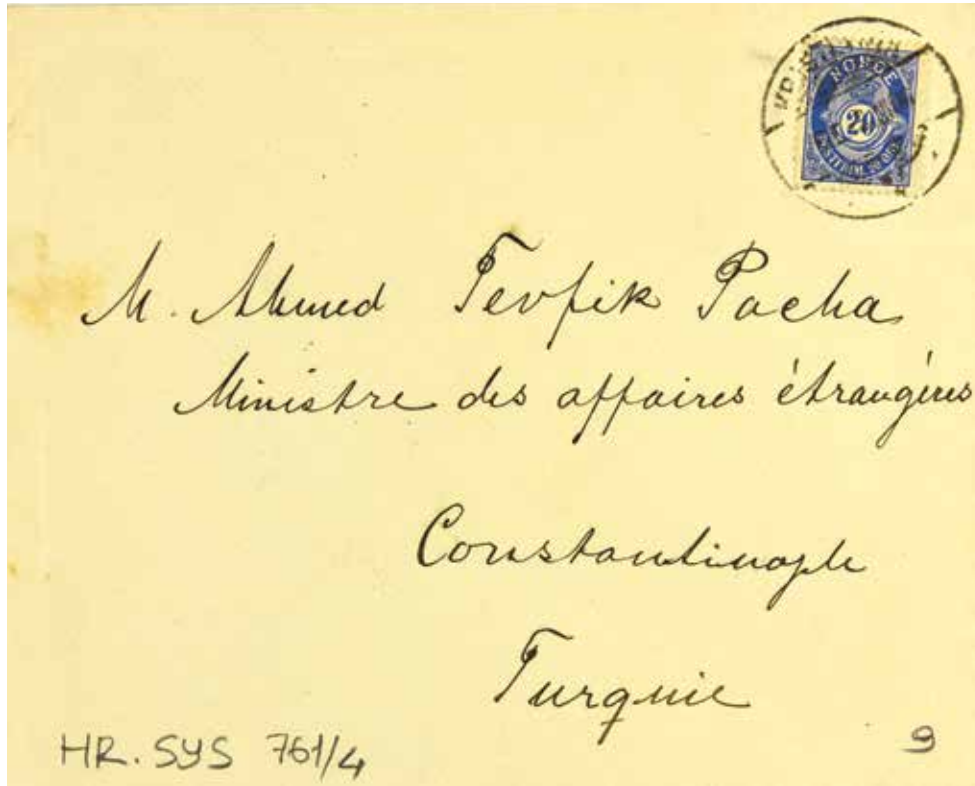 NORGE
20
M. Ahmed Tevfik Pacha
Ministre des affaires étrangères
Constantinople
Turquie
HR. SYS 761/4
9